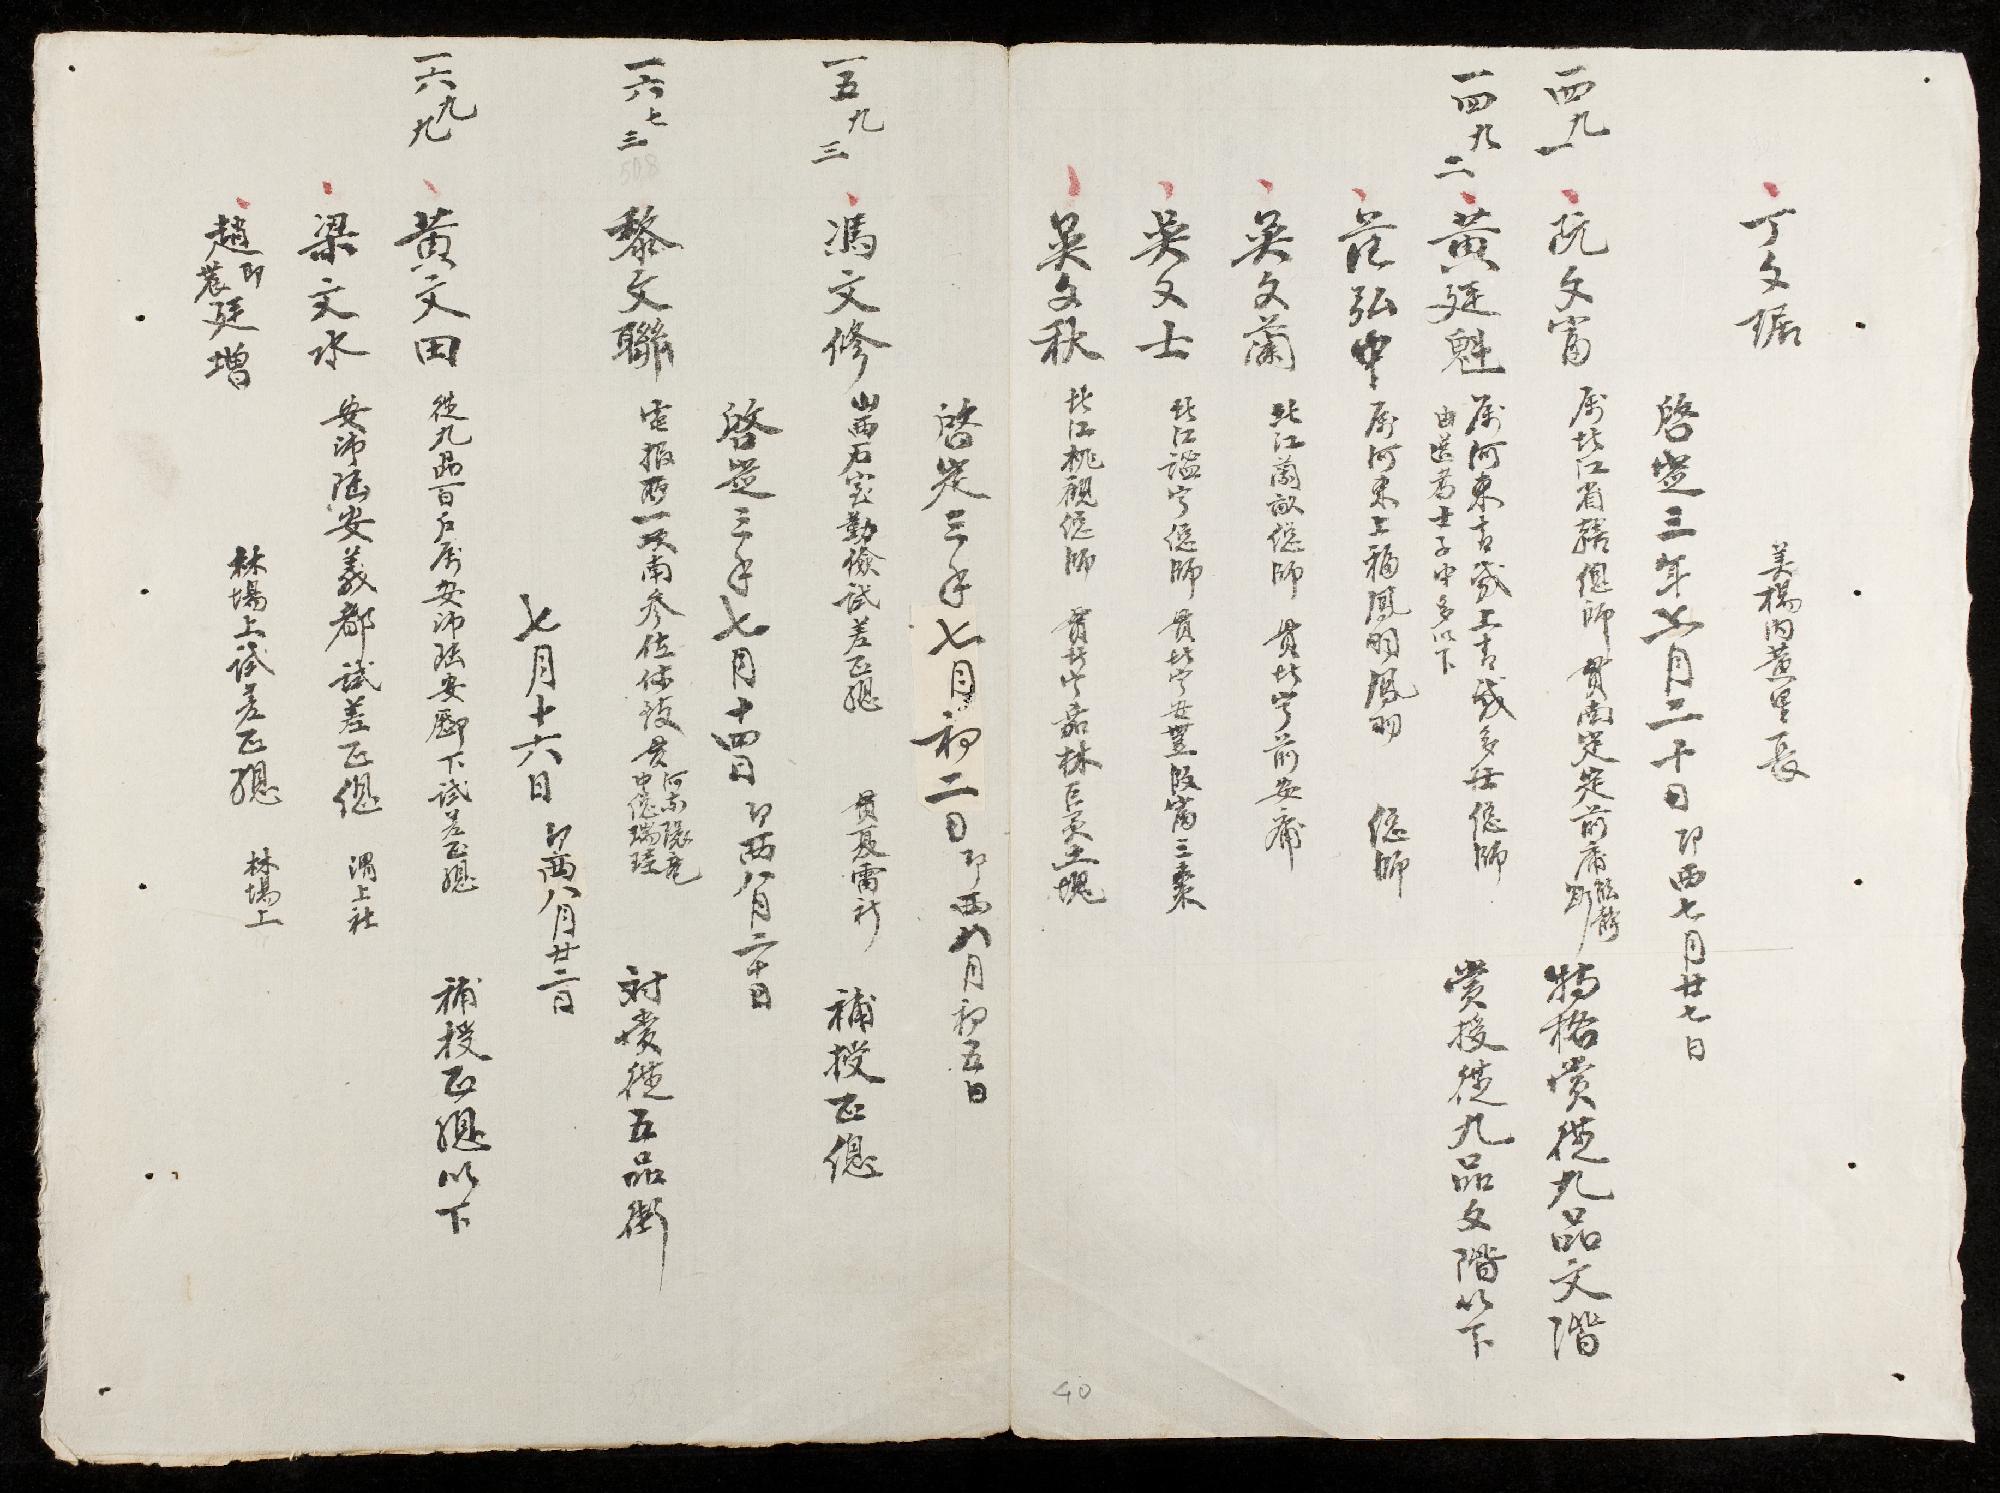 丁文琚
美楊內黃里長
啓定三年七月二十日即西七月廿七日
一四九一
阮文富
属北江省轄偬師
貫南定
特格賞從九品文階
一四九二
黃廷魁
属河東青威上青威多士偬師
由選考士子中多以下
賞授從九品文階以下
范弘中
属河東上福鳳羽鳳羽
偬師
吳文蘭
北江蘭
偬師
貫北寧
前安
吳文士
北江謐寧偬師
貫北寧安豐
三棗
吳文秋
北江桃觀偬師
貫北寧嘉林巨灵土塊
啓定三年七月初二日即西八月初五日
一五九三
馮文修
山西石室勤儉試差正總
貫夏雷
補授正偬
啓定三年七月十四日即西八月二十日
一六七三
508
黎文聯
電報
南參佐
貫河南
対賞從五品銜
七月十六日即西八月廿二日
一六九九
黃文田
從九品百户属安沛陸安
下試差正總
補授正總以下
梁文水
安沛陸安義都試差正偬
渭上社
趙廷增
即農
林場上試差正總
林場上
40